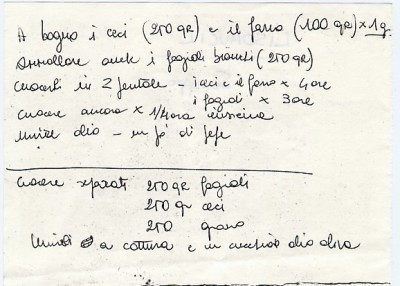 A bagno i ceci (250 gr) e il farro (100 gr) x 1 g.
Ammollare anche i fagioli bianchi (250 gr)
cuocerli in 2 pentole - i ceci e il farro x 4 ore
i fagioli x 3 ore
cuocere ancora x 1/4 ora insieme
unire olio - un pò di pepe
cuocere separati 250 gr fagioli
250 gr ceci
250 grano
Unirli a cottura e un cucchiaio olio oliva